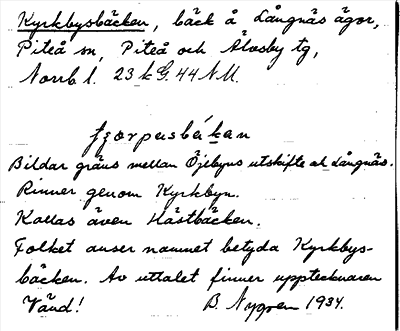 Kyrkbysbäcken, bäck å Långnäs ägor,
Piteå sn, Piteå och Älvsby tg,
Norrb l. 23 k G. 44 N.U.
Bildar gräns mellan Öjebyns utskifte och Långnäs.
Rinner genom Kyrkbyn.
Kallas även Hästbäcken.
Folket anser namnet betyda Kyrkbys-
bäcken. Av uttalet finner upptecknaren
Vänd! B. Nygren 1934.